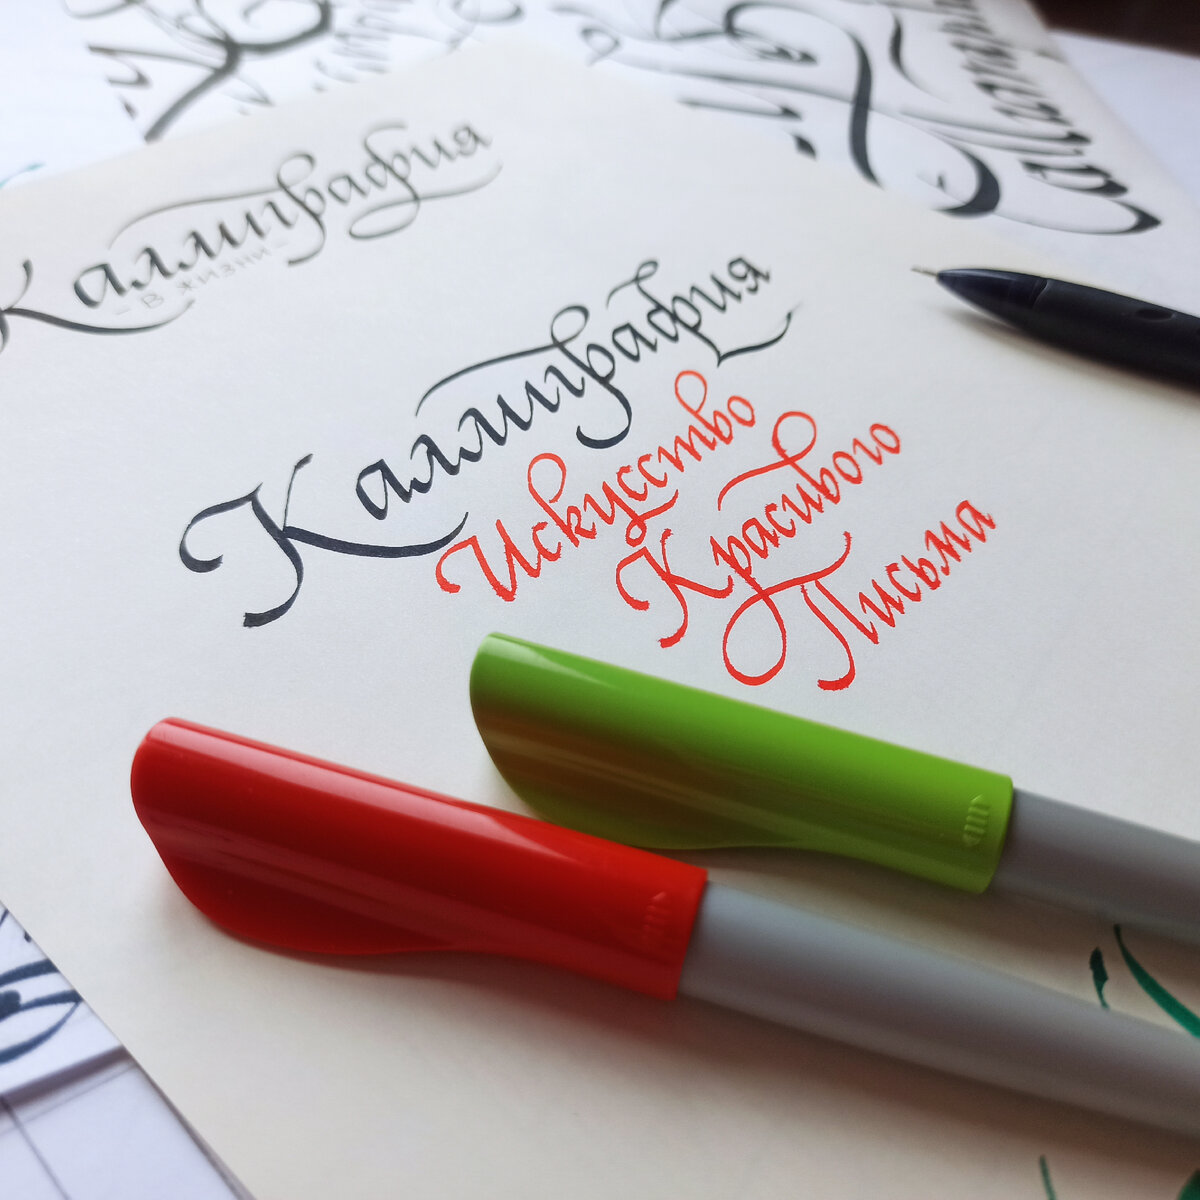 Каллиграфия
- В ЖИЗНИ -
Каллиграфия
Искусство
Красивого
Письма